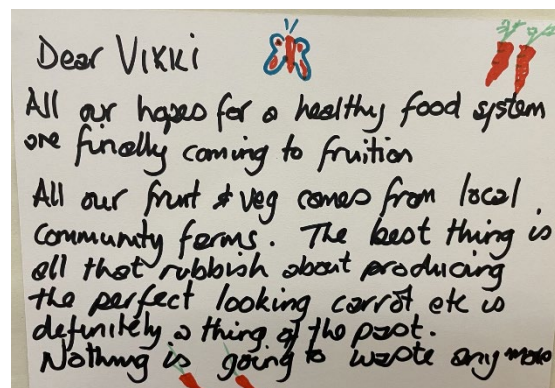 Dear Vikki
All our hopes for a healthy food system
are finally coming to fruition
All our fruit & veg comes from local
community farms. The best thing is
all that rubbish about producing
the perfect looking carrot etc is
definitely a thing of the past.
Nothing is going to waste any more